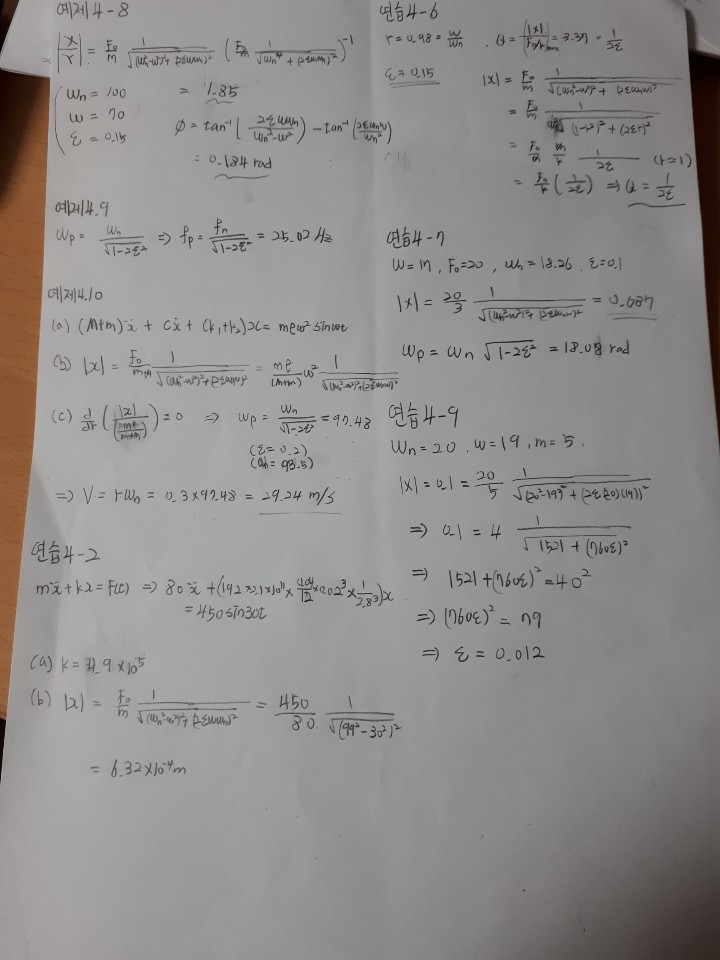 예제4-8
|X/Y| = F₀/m 1/√((ωn²-ω²)²+(2ξωnω)²) (F₀/m 1/√(ωn⁴+(2ξωnω)²))⁻¹
ωn = 100
= 1.85
ω = 70
ξ = 0.15
φ = tan⁻¹(2ξωωn/(ωn²-ω²)) - tan⁻¹(2ξωnω/ωn²)
= 0.184 rad
예제4.9
ωp = ωn/√(1-2ξ²) ⇒ fp = fn/√(1-2ξ²) = 25.02 Hz
예제4.10
(a) (M+m)ẍ + cẋ + (k₁+k₂)x = meω² sinωt
(b) |x| = F₀/(m+M) 1/√((ωn²-ω²)²+(2ξωnω)²) = me/(M+m) ω² 1/√((ωn²-ω²)²+(2ξωnω)²)
(c) ⇒ ωp = ωn/√(1-2ξ²) = 97.48
(ξ = 0.2)
(ωn = 93.5)
⇒ V = rωn = 0.3×97.48 = 29.24 m/s
연습4-2
mẍ + kx = F(t) ⇒ 80ẍ
= 450 sin30t
(b) |x| = F₀/m 1/√((ωn²-ω²)²+(2ξωnω)²) = 450/80 1/√((99²-30²)²)
= 6.32×10⁻⁴ m
연습4-6
r = 0.98 = ω/ωn , = 3.37 = 1/2ξ
ξ = 0.15
|x| = F₀/m 1/√((ωn²-ω²)² + (2ξωnω)²)
= F₀/m 1/√((1-r²)² + (2ξr)²)
= F₀/m m/k 1/2ξ (r=1)
= F₀/k (1/2ξ) ⇒ Q = 1/2ξ
연습4-7
ω = 17, F₀ = 20 , ωn = 18.26 , ξ = 0.1
|x| = 20/3 1/√((ωn²-ω²)²+(2ξωnω)²) = 0.087
ωp = ωn √(1-2ξ²) = 18.08 rad
연습4-9
ωn = 20 . ω = 19 , m = 5 .
|x| = 0.1 = 20/5 1/√((20²-19²)² + (2ξ(20)(19))²)
⇒ 0.1 = 4 1/√(1521 + (760ξ)²)
⇒ 1521 + (760ξ)² = 40²
⇒ (760ξ)² = 79
⇒ ξ = 0.012